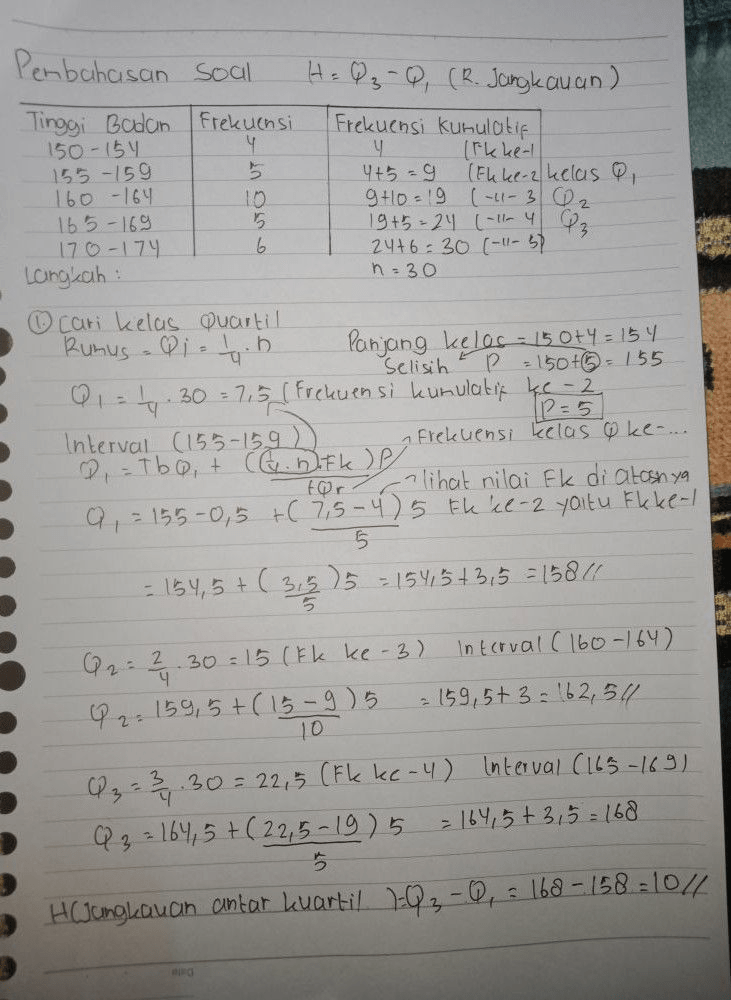 Pembahasan Soal H = Q₃ - Q₁ (R. Jangkauan)
Tinggi Badan Frekuensi Frekuensi Kumulatif
150 - 154 4 4 (Fk ke-1
155 - 159 5 4+5 = 9 (Fk ke-2 kelas Q₁
160 - 164 10 9+10 = 19 (-11- 3 Q₂
165 - 169 5 19+5 = 24 (-11- 4 Q₃
170 - 174 6 24+6 = 30 (-11- 5)
Langkah : n = 30
① Cari kelas Quartil
Rumus = Qi = 1/4 . n Panjang kelas = 150+4 = 154
Selisih P = 150+5 = 155
Q₁ = 1/4 . 30 = 7,5 (Frekuensi kumulatif ke - 2
P = 5
Interval (155-159) Frekuensi kelas Q ke-...
Q₁ = TbQ₁ + (1/4.n - Fk / fQr) P
lihat nilai Fk di atasnya
Q₁ = 155 - 0,5 + (7,5 - 4 / 5) 5 Fk ke-2 yaitu Fk ke-1
= 154,5 + (3,5/5) 5 = 154,5 + 3,5 = 158 //
Q₂ = 2/4 . 30 = 15 (Fk ke - 3) Interval (160 - 164)
Q₂ = 159,5 + (15 - 9 / 10) 5 = 159,5 + 3 = 162,5 //
Q₃ = 3/4 . 30 = 22,5 (Fk ke - 4) Interval (165 - 169)
Q₃ = 164,5 + (22,5 - 19 / 5) 5 = 164,5 + 3,5 = 168
H (Jangkauan antar kuartil ) = Q₃ - Q₁ = 168 - 158 = 10 //
Date